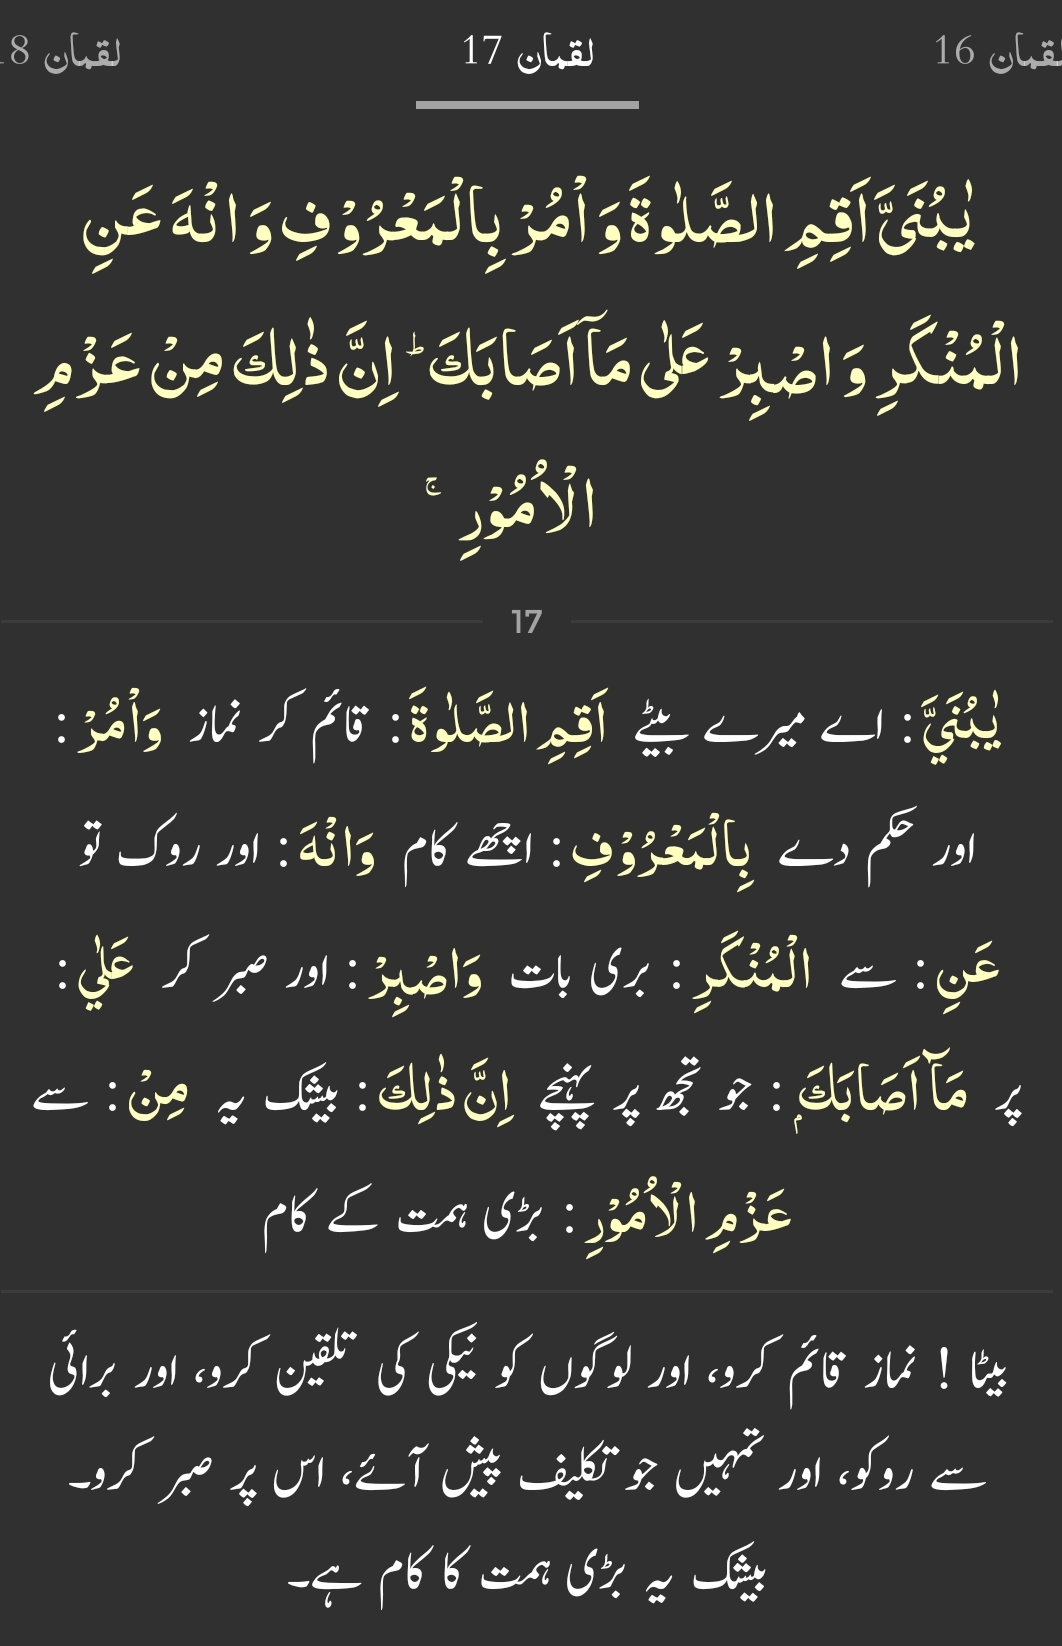 لقمان 16 لقمان 17 لقمان 18
يٰبُنَىَّ اَقِمِ الصَّلٰوةَ وَ اْمُرْ بِالْمَعْرُوْفِ وَ انْهَ عَنِ
الْمُنْكَرِ وَ اصْبِرْ عَلٰى مَاۤ اَصَابَكَ ؕ اِنَّ ذٰلِكَ مِنْ عَزْمِ
الْاُمُوْرِ ۚ
17
يٰبُنَيَّ : اے میرے بیٹے اَقِمِ الصَّلٰوةَ : قائم کر نماز وَاْمُرْ :
اور حکم دے بِالْمَعْرُوْفِ : اچھے کام وَانْهَ : اور روک تو
عَنِ : سے الْمُنْكَرِ : بری بات وَاصْبِرْ : اور صبر کر عَلٰي :
پر مَآ اَصَابَكَ ۭ : جو تجھ پر پہنچے اِنَّ ذٰلِكَ : بیشک یہ مِنْ : سے
عَزْمِ الْاُمُوْرِ : بڑی ہمت کے کام
بیٹا ! نماز قائم کرو، اور لوگوں کو نیکی کی تلقین کرو، اور برائی
سے روکو، اور تمہیں جو تکلیف پیش آئے، اس پر صبر کرو۔
بیشک یہ بڑی ہمت کا کام ہے۔